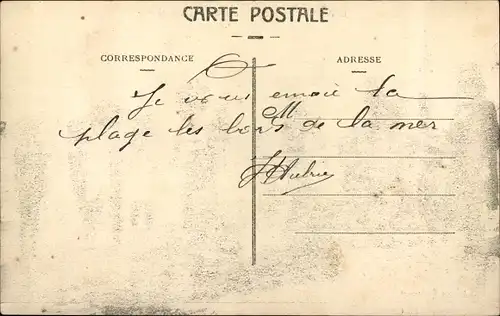 CARTE POSTALE
CORRESPONDANCE
ADRESSE
Je vous envoie la
M
plage les bors de la mer